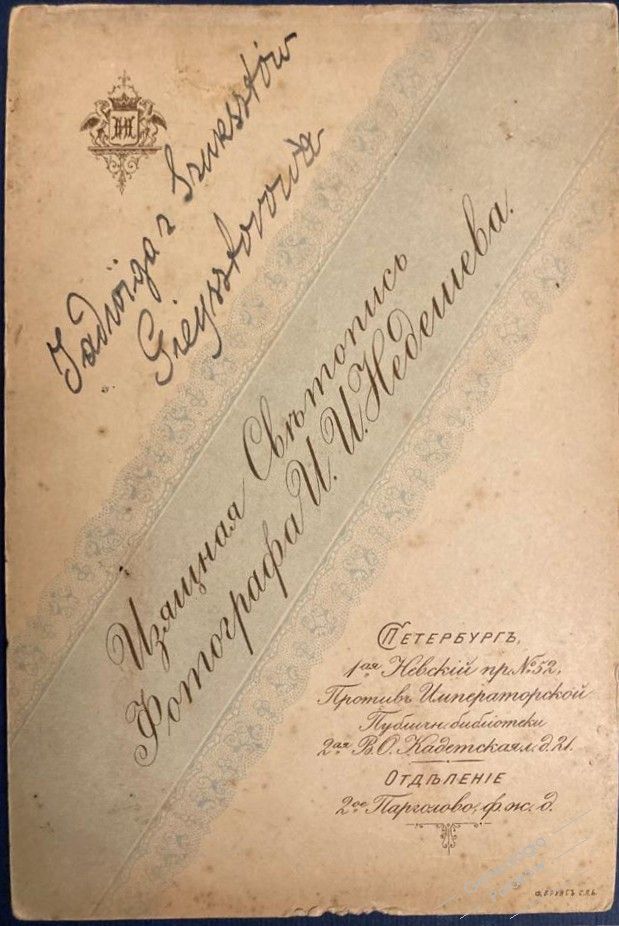 ИИН
Jadwiga z Szuksztów
Gieysztorowa
Изящная Свѣтопись
Фотографа И. И. Недешева.
СПЕТЕРБУРГЪ,
1ая Невскій пр. № 52,
Противъ Императорской
Публичн. библіотеки
2ая В.О. Кадетская л. д. 21.
ОТДѢЛЕНІЕ
2ое Парголово, ф. ж. д.